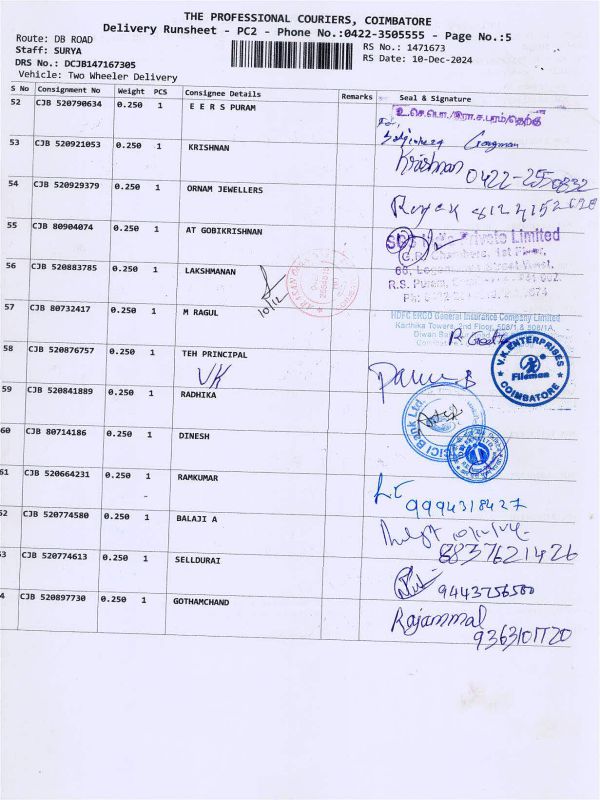 THE PROFESSIONAL COURIERS, COIMBATORE
Delivery Runsheet - PC2 - Phone No.:0422-3505555 - Page No.:5
Route: DB ROAD
RS No.: 1471673
Staff: SURYA
RS Date: 10-Dec-2024
DRS No.: DCJB147167305
Vehicle: Two Wheeler Delivery
S No Consignment No Weight PCS Consignee Details Remarks Seal & Signature
52 CJB 520790634 0.250 1 E E R S PURAM
53 CJB 520921053 0.250 1 KRISHNAN
Krishnan 0422-2550832
54 CJB 520929379 0.250 1 ORNAM JEWELLERS
55 CJB 80904074 0.250 1 AT GOBIKRISHNAN
Private Limited
G.R. Chambers, 1st Floor,
R.S. Puram,
56 CJB 520883785 0.250 1 LAKSHMANAN
10/12
57 CJB 80732417 0.250 1 M RAGUL
HDFC ERGO General Insurance Company Limited
Karthika Towers, 2nd Floor, 508/1 & 508/1A,
58 CJB 520876757 0.250 1 TEH PRINCIPAL
VK
V.K.ENTERPRISES
Fileman
COIMBATORE
59 CJB 520841889 0.250 1 RADHIKA
ICICI Bank Ltd.
60 CJB 80714186 0.250 1 DINESH
61 CJB 520664231 0.250 1 RAMKUMAR
9994318427
52 CJB 520774580 0.250 1 BALAJI A
8837621426
3 CJB 520774613 0.250 1 SELLDURAI
9443756500
4 CJB 520897730 0.250 1 GOTHAMCHAND
Rajammal
9363101720